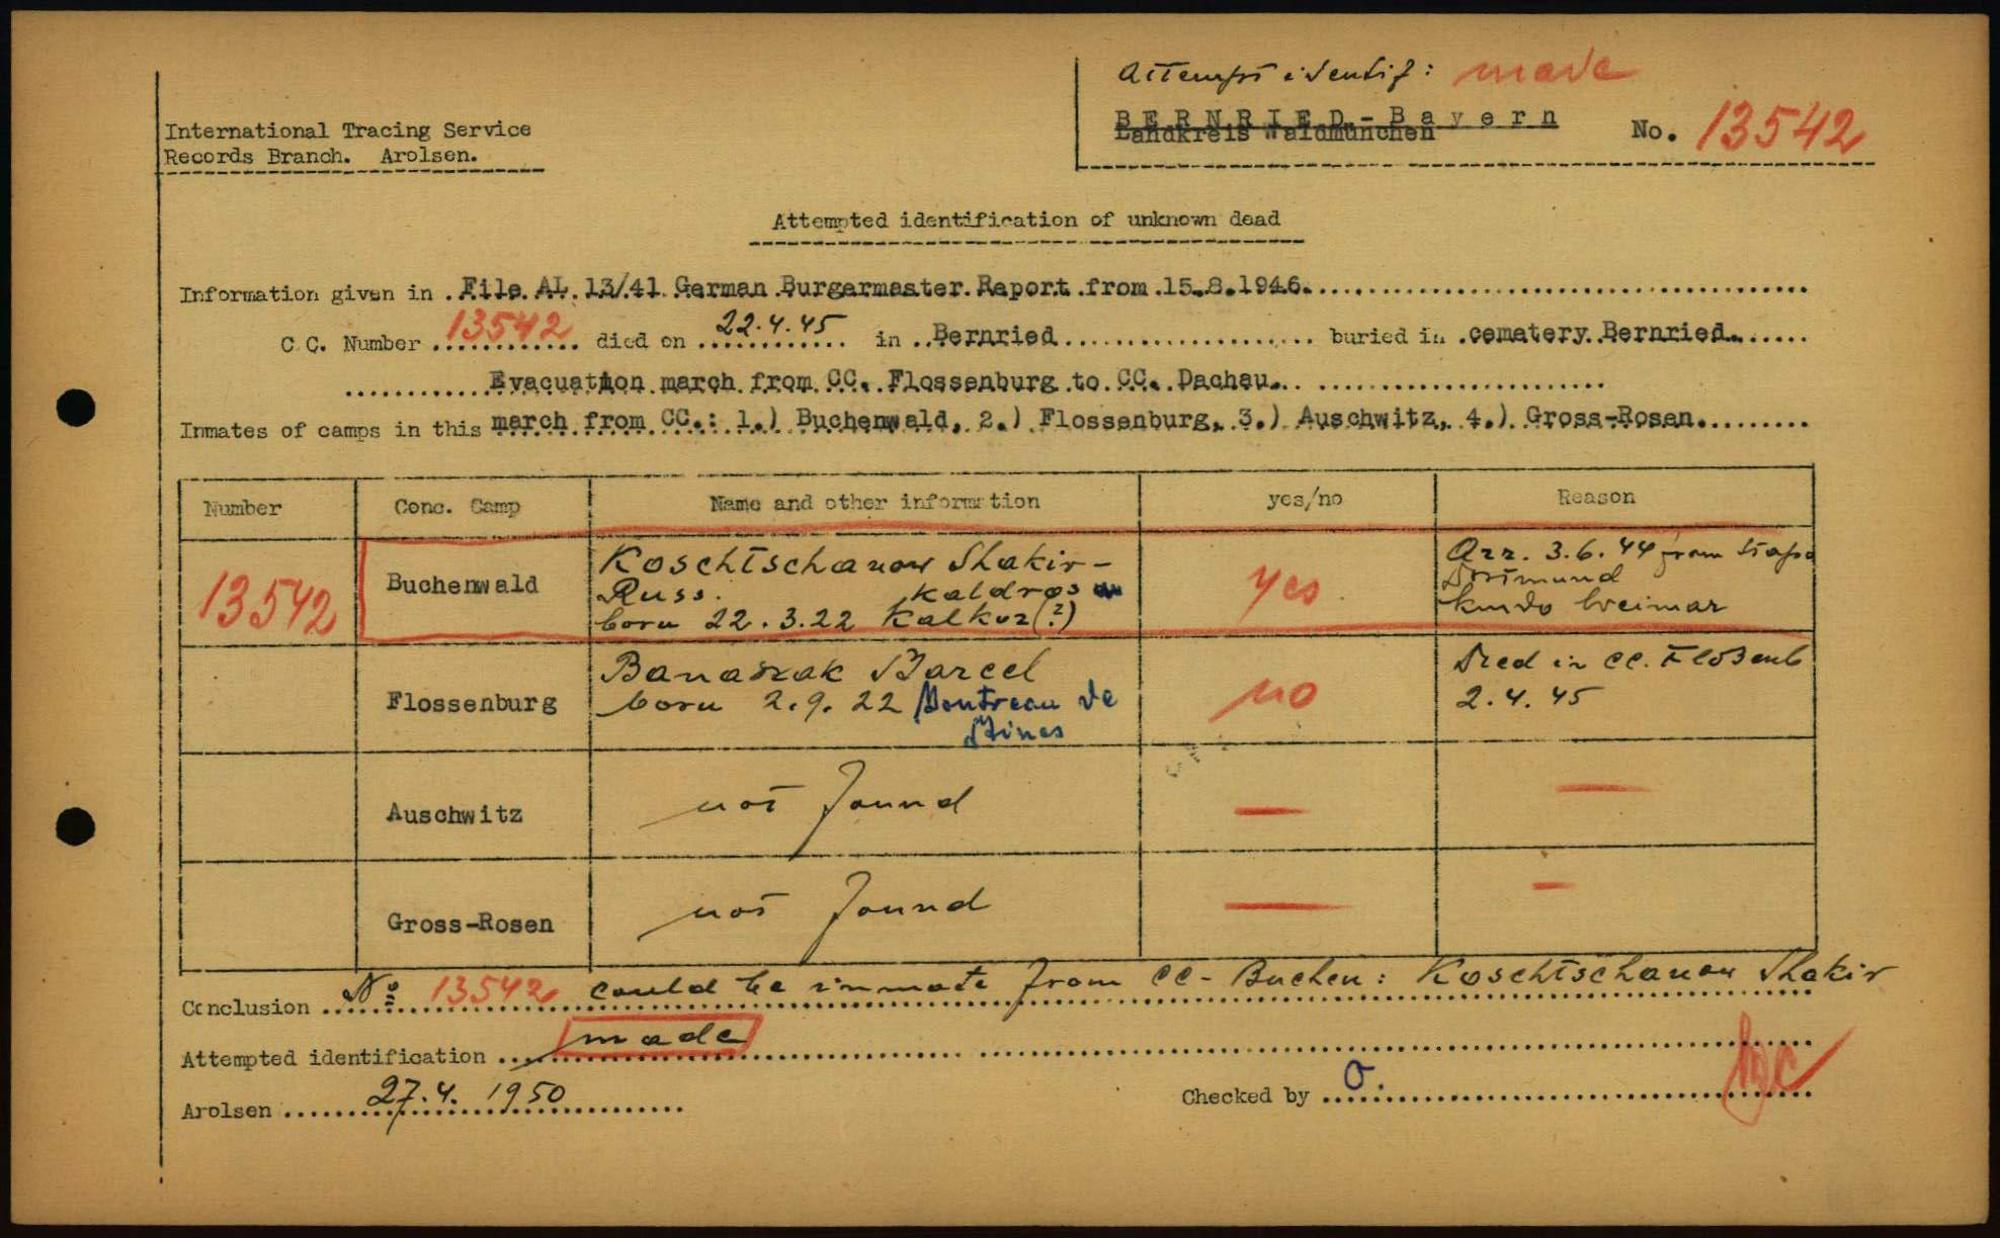 Attempt identif: made
International Tracing Service
Records Branch. Arolsen.
BERNRIED - Bayern
Landkreis Waldmünchen
No. 13542
Attempted identification of unknown dead
Information given in File AL 13/41 German Burgermaster Raport from 15.8.1946.
C.C. Number 13542 died on 22.4.45 in Bernried buried in cematery Bernried.
Evacuation march from CC. Flossenburg to CC. Dachau.
Inmates of camps in this march from CC.: 1.) Buchenwald, 2.) Flossenburg, 3.) Auschwitz, 4.) Gross-Rosen.
Number Conc. Camp Name and other information yes/no Reason
13542 Buchenwald Koschtschanow Shakir- yes Arr. 3.6.44 from Stapo
Russ. Dortmund
born 22.3.22 Kalkuz(?) Kmdo Weimar
Flossenburg Banaszak Marcel no Died in CC. Floßenb
born 2.9.22 Montreau de 2.4.45
Mines
Auschwitz not found —
Gross-Rosen not found —
Conclusion No 13542 could be inmate from CC-Buchen: Koschtschanow Shakir
Attempted identification made
Arolsen 27.4.1950
Checked by O.